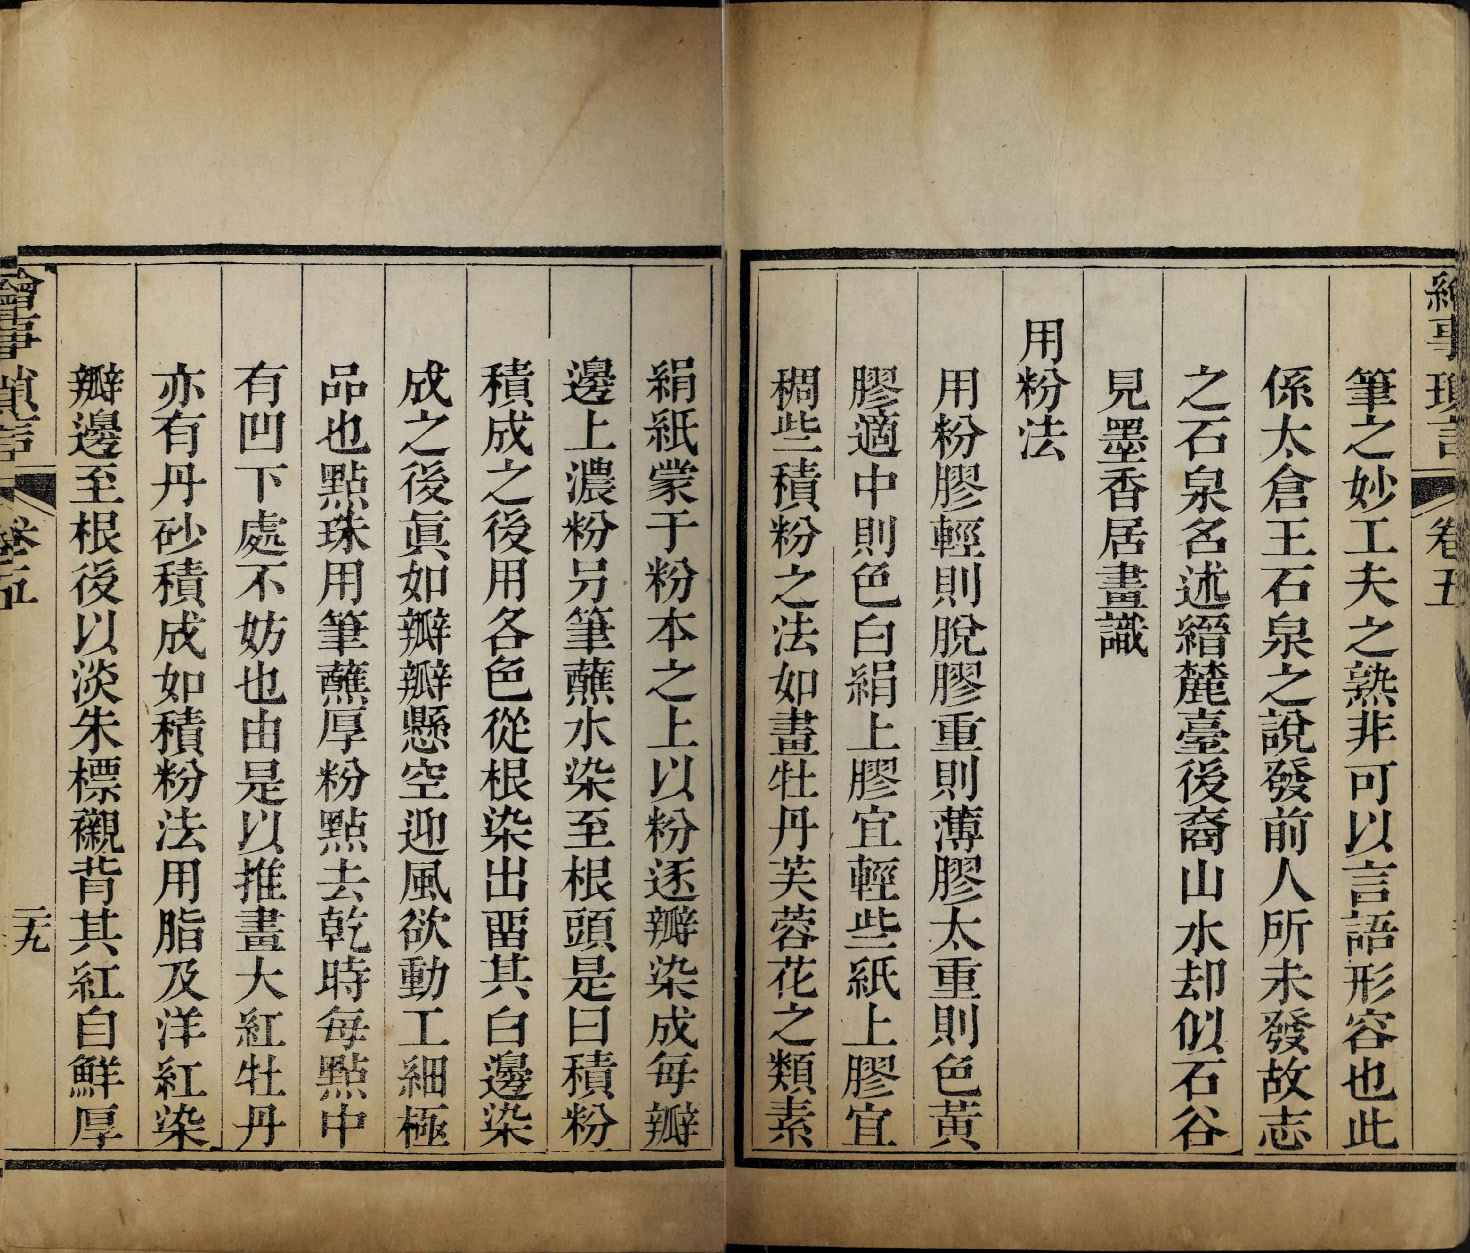 繪事瑣言 卷五
筆之妙工夫之熟非可以言語形容也此
係太倉王石泉之說發前人所未發故志
之石泉名述縉麓臺後裔山水却似石谷
見墨香居畫識
用粉法
用粉膠輕則脫膠重則薄膠太重則色黃
膠適中則色白絹上膠宜輕些紙上膠宜
稠些積粉之法如畫牡丹芙蓉花之類素
絹紙蒙于粉本之上以粉逐瓣染成每瓣
邊上濃粉另筆蘸水染至根頭是曰積粉
積成之後用各色從根染出畱其白邊染
成之後眞如瓣瓣懸空迎風欲動工細極
品也點珠用筆蘸厚粉點去乾時每點中
有凹下處不妨也由是以推畫大紅牡丹
亦有丹砂積成如積粉法用脂及洋紅染
瓣邊至根後以淡朱標襯背其紅自鮮厚
繪事瑣言 卷五 二九